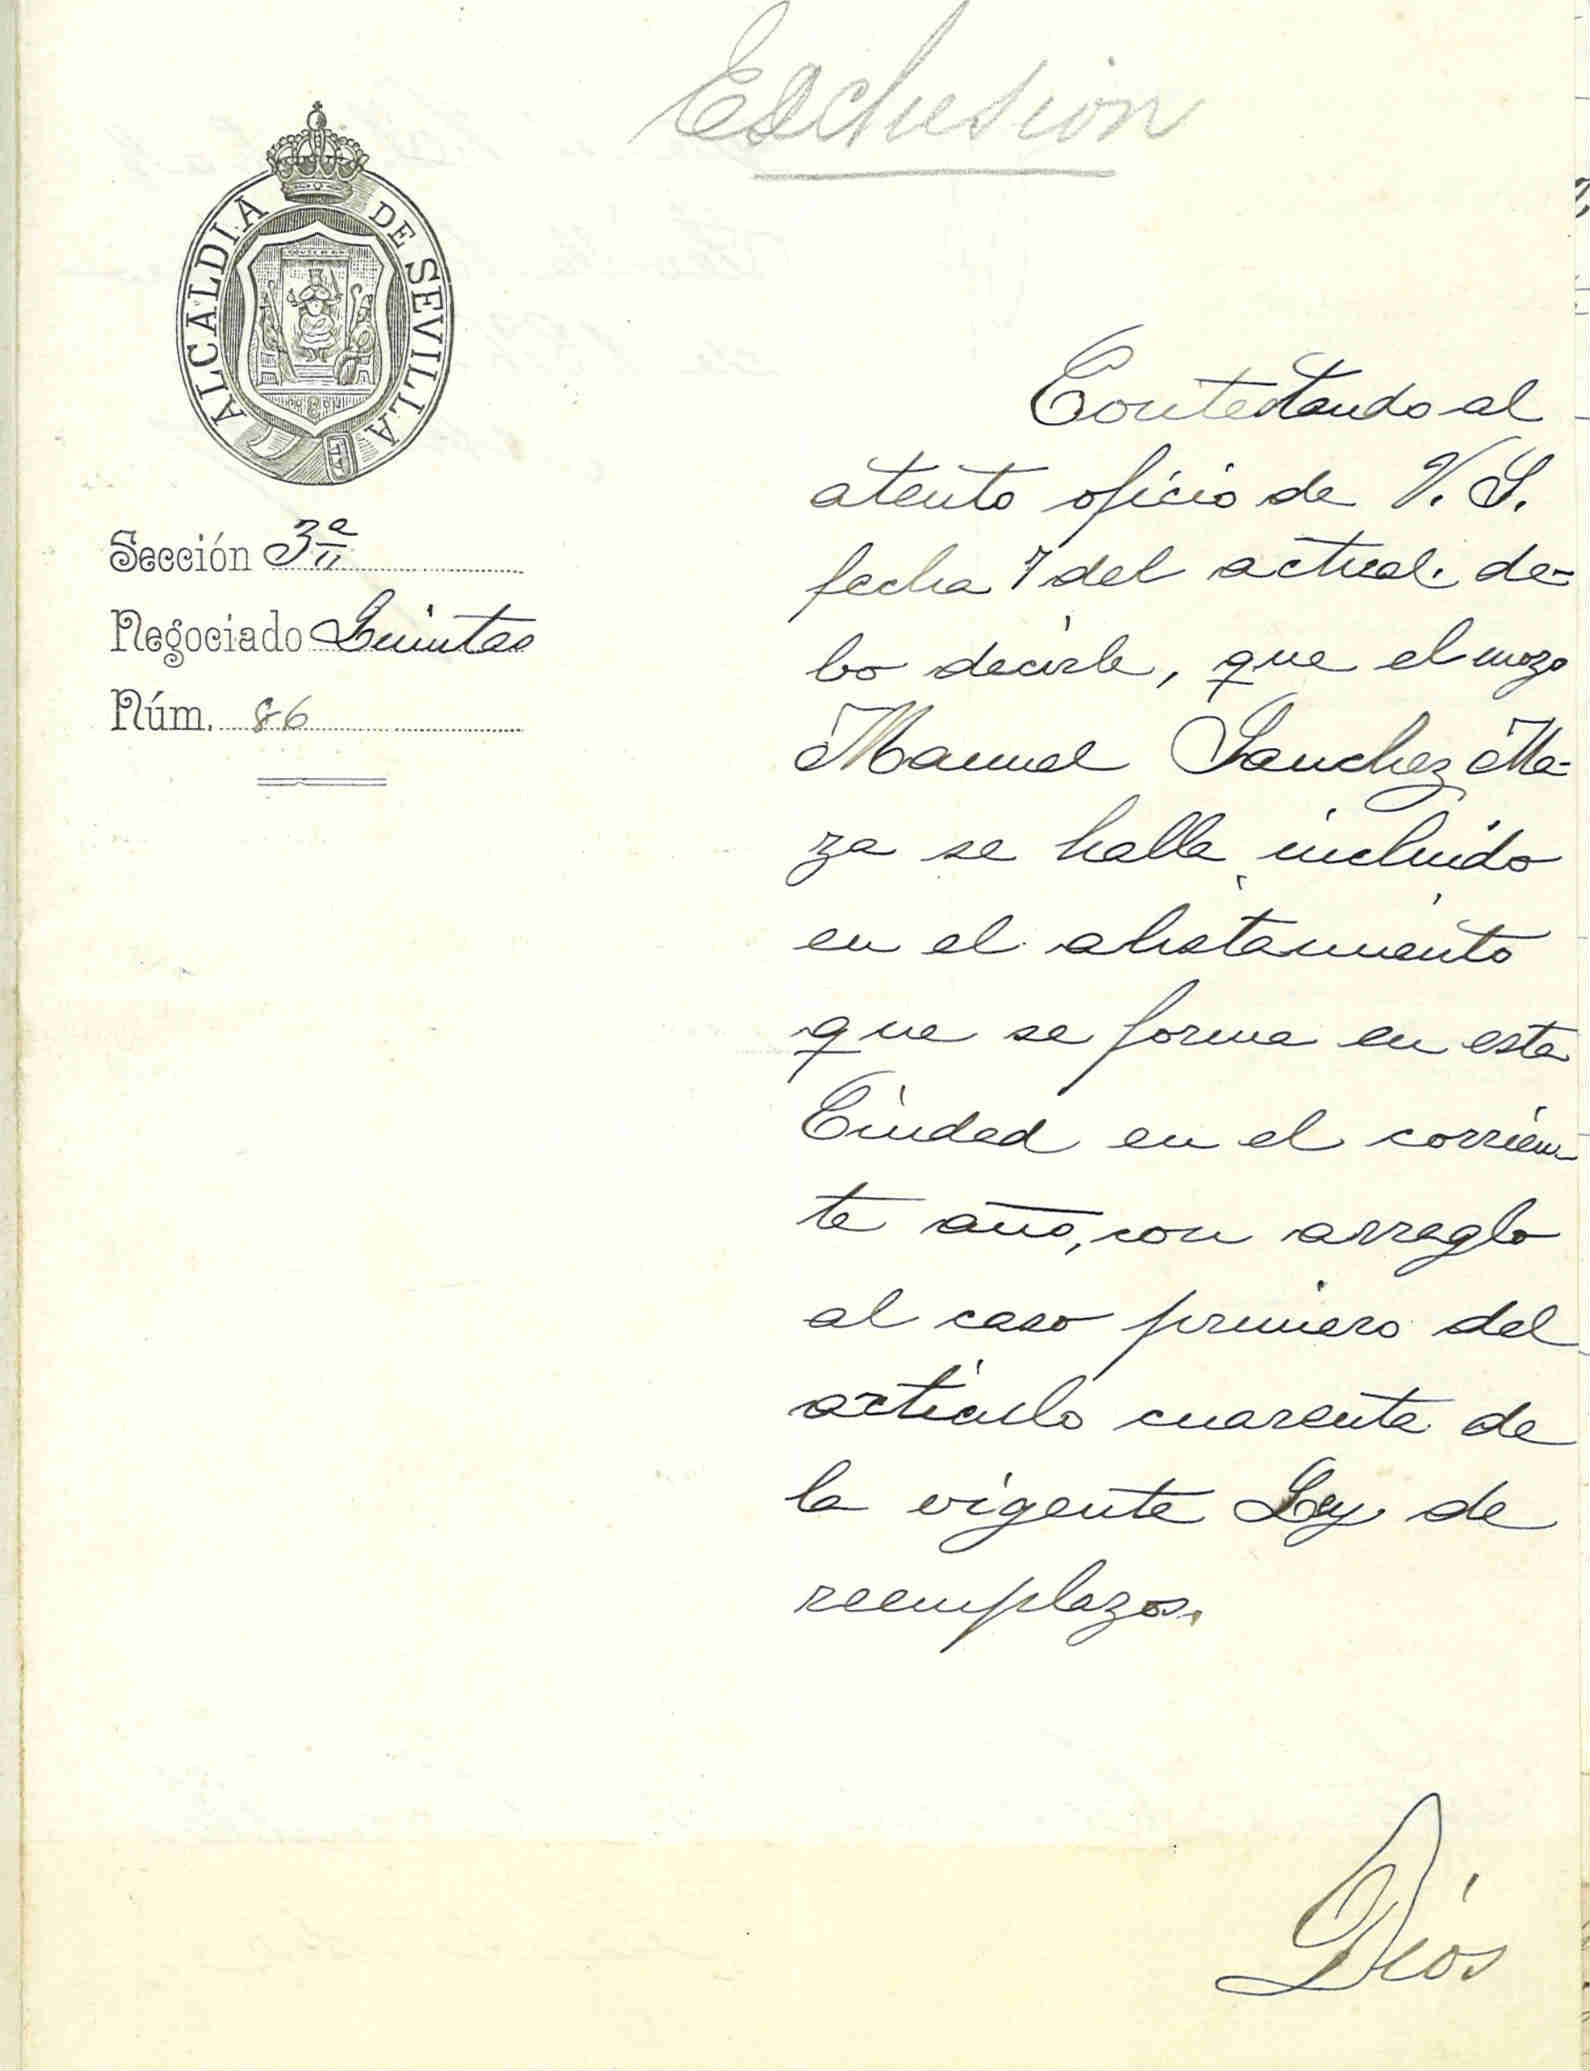 Exclusion
ALCALDIA DE SEVILLA
Sección 3ª
Negociado Quintas
Núm. 86
Contestando al
atento oficio de V. S.
fecha 7 del actual. de-
bo decirle, que el mozo
Manuel Sanchez Ma-
za se halla incluido
en el alistamiento
que se forma en esta
Ciudad en el corrien-
te año, con arreglo
al caso primero del
artículo cuarenta de
la vigente Ley de
reemplazos.
Dios